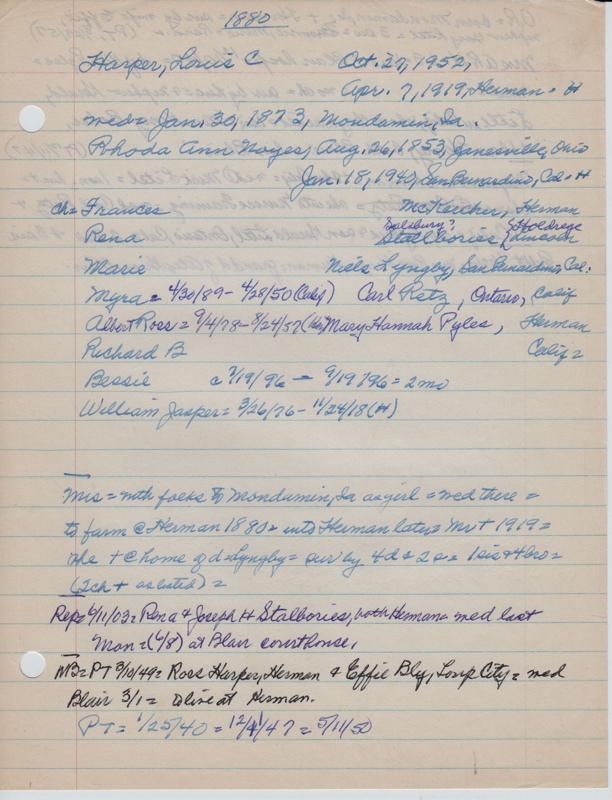 1880
Harper, Louis C Oct. 27, 1952,
Apr. 7, 1919, Herman = H
med= Jan. 30, 1873, Mondamin, Ia.
Rhoda Ann Noyes, Aug. 26, 1853, Janesville, Ohio
Jan. 18, 1940, San Bernardino, Cal = H
ch= Frances McKercher, Herman
Salsbury? Holdrege
Rena Stalbories, Lincoln
Marie Niels Lyngby, San Bernardino, Cal.
Myra = 4/30/89 - 4/28/50 (Calif) Carl Retz, Ontario, Calif
Albert Ross = 9/4/78 - 8/24/57 Mary Hannah Pyles, Herman
Richard B Calif =
Bessie c 7/19/96 - 9/19/96 = 2mo
William Jasper = 3/26/76 - 11/24/18 (H)
Mrs = with folks to Mondamin, Ia as girl = med there =
to farm @ Herman 1880 = into Herman later = Mr + 1919 =
she + @ home of d = Lyngby = sur by 4d & 2s = 1sis & 4bro =
(2ch + as listed) =
Rep= 6/11/03 = Rena & Joseph H Stalbories, both Herman = med last
Mon = (6/8) at Blair courthouse.
MB= PT 3/10/49 = Ross Harper, Herman & Effie Bly, Loup City = med
Blair 3/1 = to live at Herman.
PT = 1/25/40 = 12/11/47 = 5/11/50